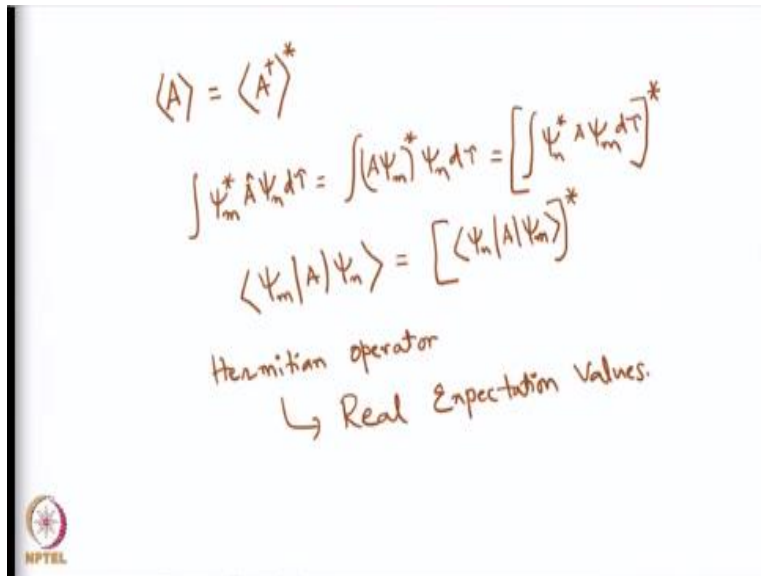 ⟨A⟩ = ⟨A†⟩*
∫ Ψm* Â Ψn dτ = ∫(AΨm)* Ψn dτ = [∫ Ψn* A Ψm dτ]*
⟨Ψm|A|Ψn⟩ = [⟨Ψn|A|Ψm⟩]*
Hermitian operator
↳ Real Expectation Values.
NPTEL